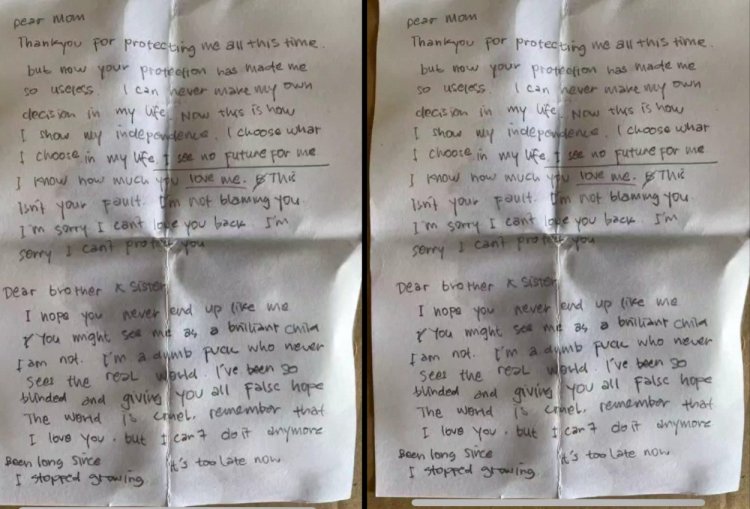 Dear Mom
Thankyou for protecting me all this time.
but now your protection has made me
so useless. I can never make my own
decision in my life. Now this is how
I show my independence. I choose what
I choose in my life. I see no future for me
I know how much you love me. This
isn't your fault. I'm not blaming you.
I'm sorry I cant love you back. I'm
sorry I can't protect you
Dear brother & Sister
I hope you never end up like me
You might see me as a brilliant child
I am not. I'm a dumb fuck who never
sees the real world. I've been so
blinded and giving you all false hope
The world is cruel, remember that
I love you. but I can't do it anymore
Been long since it's too late now
I stopped growing.
Dear Mom
Thankyou for protecting me all this time.
but now your protection has made me
so useless. I can never make my own
decision in my life. Now this is how
I show my independence. I choose what
I choose in my life. I see no future for me
I know how much you love me. This
isn't your fault. I'm not blaming you.
I'm sorry I cant love you back. I'm
sorry I can't protect you
Dear brother & Sister
I hope you never end up like me
You might see me as a brilliant child
I am not. I'm a dumb fuck who never
sees the real world. I've been so
blinded and giving you all false hope
The world is cruel, remember that
I love you. but I can't do it anymore
Been long since it's too late now
I stopped growing.